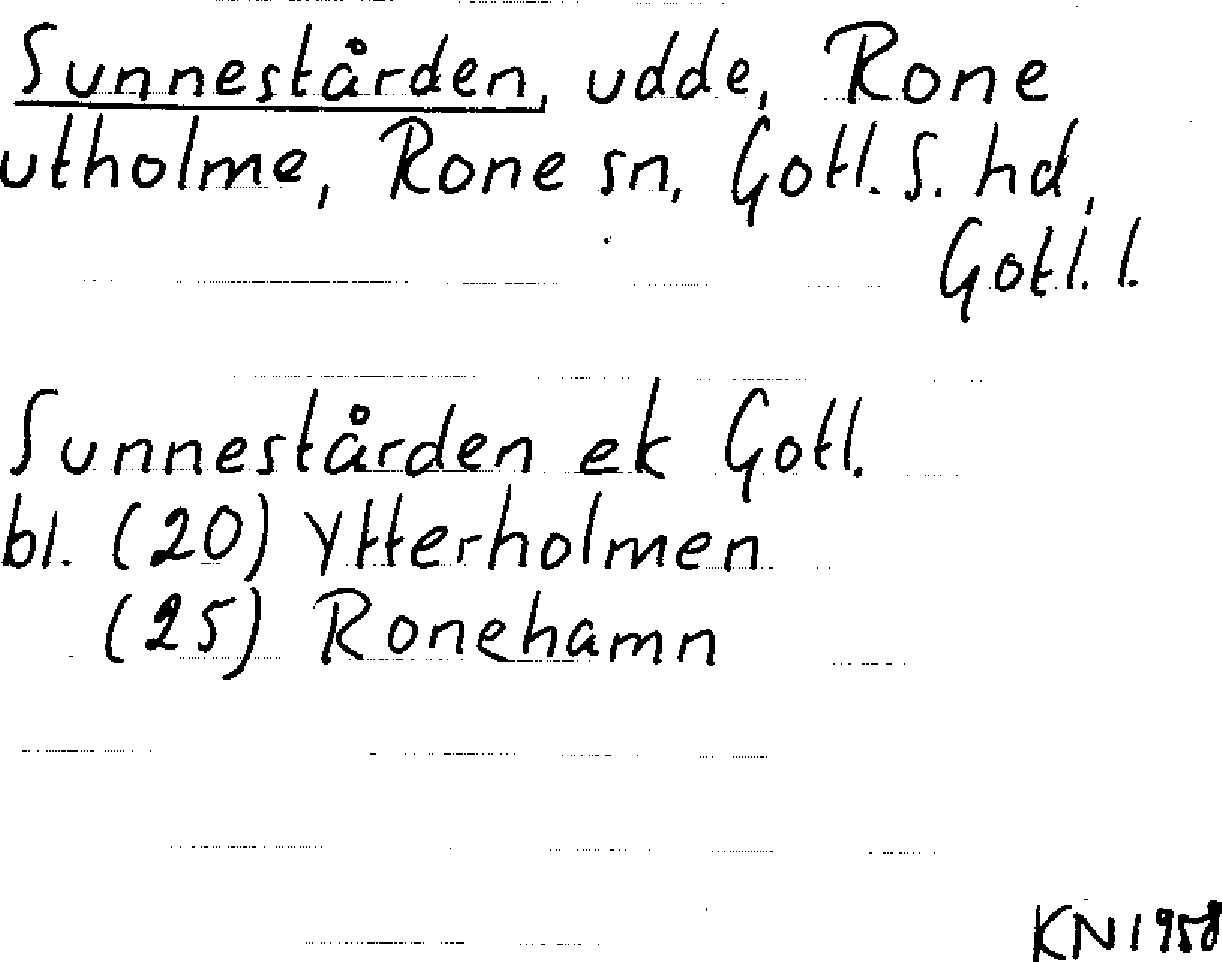 Sunnestården, udde, Rone
utholme, Rone sn, Gotl. S. hd,
Gotl. l.
Sunnestården ek Gotl.
bl. (20) Ytterholmen
(25) Ronehamn
KN 1958